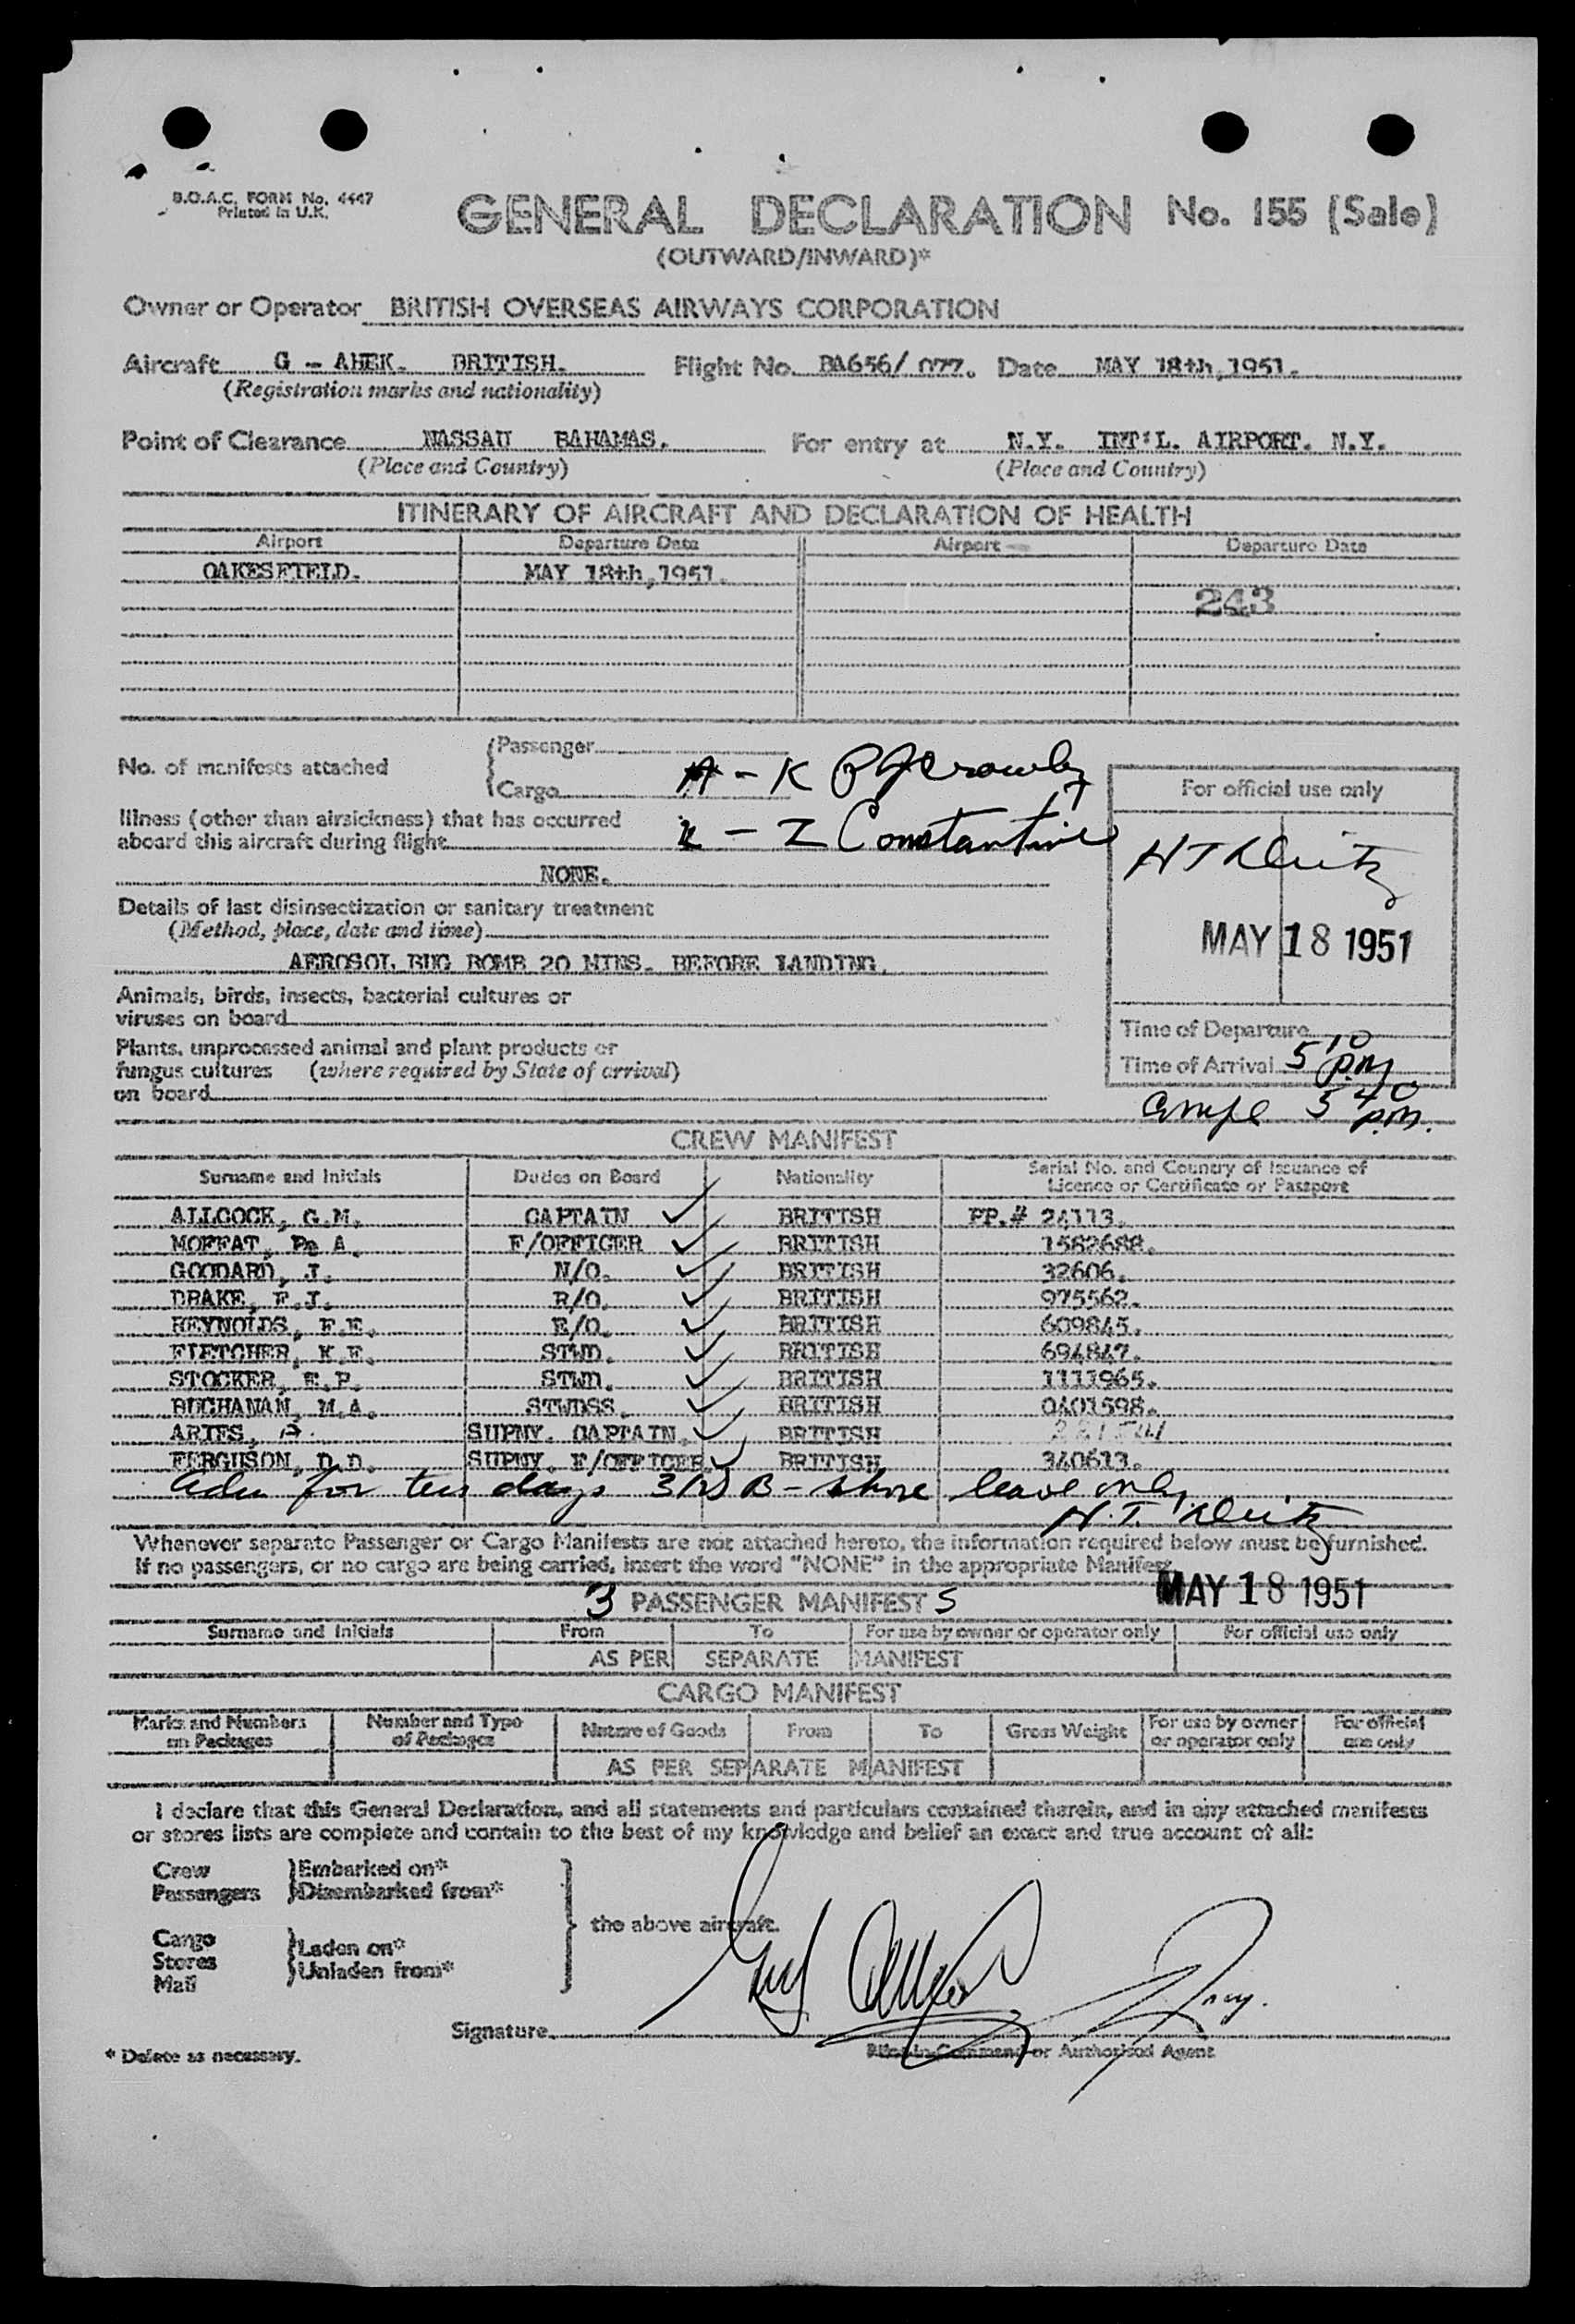 B.O.A.C. FORM No. 4447
Printed in U.K.
GENERAL DECLARATION No. 155 (Sale)
(OUTWARD/INWARD)*
Owner or Operator BRITISH OVERSEAS AIRWAYS CORPORATION
Aircraft G - AHEK. BRITISH. Flight No. BA656/ 077. Date MAY 18th, 1951.
(Registration marks and nationality)
Point of Clearance NASSAU BAHAMAS. For entry at N.Y. INT'L. AIRPORT. N.Y.
(Place and Country) (Place and Country)
ITINERARY OF AIRCRAFT AND DECLARATION OF HEALTH
Airport Departure Date Airport Departure Date
OAKESFIELD. MAY 18th, 1951.
243
No. of manifests attached
Passenger
Cargo
A - K Crowley
- Z Constantine
Illness (other than airsickness) that has occurred
aboard this aircraft during flight
NONE.
Details of last disinsectization or sanitary treatment
(Method, place, date and time)
AEROSOL BUG BOMB 20 MINS. BEFORE LANDING.
Animals, birds, insects, bacterial cultures or
viruses on board
Plants, unprocessed animal and plant products or
fungus cultures (where required by State of arrival)
on board
For official use only
MAY 18 1951
Time of Departure
Time of Arrival 5 10 PM
5 40 P.M.
CREW MANIFEST
Surname and Initials Duties on Board Nationality Serial No. and Country of Issuance of
Licence or Certificate or Passport
ALLCOCK, G.M. CAPTAIN ✓ BRITISH PP.# 24113.
MOFFAT, P. A. F/OFFICER ✓ BRITISH 1582688.
GOODARD, J. N/O. ✓ BRITISH 32606.
DRAKE, F.J. R/O. ✓ BRITISH 975562.
REYNOLDS, F.E. E/O. ✓ BRITISH 609845.
FLETCHER, K.E. STWD. ✓ BRITISH 694847.
STOCKER, E.P. STWD. ✓ BRITISH 1111965.
BUCHANAN, M.A. STWDSS. ✓ BRITISH 0401598.
ARIES, A. SUPNY. CAPTAIN. ✓ BRITISH
FERGUSON, D.D. SUPNY. F/OFFICER ✓ BRITISH 340613.
Adm for ten days - shore leave only
H.T.
Whenever separate Passenger or Cargo Manifests are not attached hereto, the information required below must be furnished.
If no passengers, or no cargo are being carried, insert the word "NONE" in the appropriate Manifest.
MAY 18 1951
3 PASSENGER MANIFESTS
Surname and Initials From To For use by owner or operator only For official use only
AS PER SEPARATE MANIFEST
CARGO MANIFEST
Marks and Numbers on Packages Number and Type of Packages Nature of Goods From To Gross Weight For use by owner or operator only For official use only
AS PER SEPARATE MANIFEST
I declare that this General Declaration, and all statements and particulars contained therein, and in any attached manifests
or stores lists are complete and contain to the best of my knowledge and belief an exact and true account of all:
Crew
Passengers
Embarked on*
Disembarked from*
Cargo
Stores
Mail
Laden on*
Unladen from*
the above aircraft.
Signature
Pilot-in-Command or Authorised Agent
* Delete as necessary.